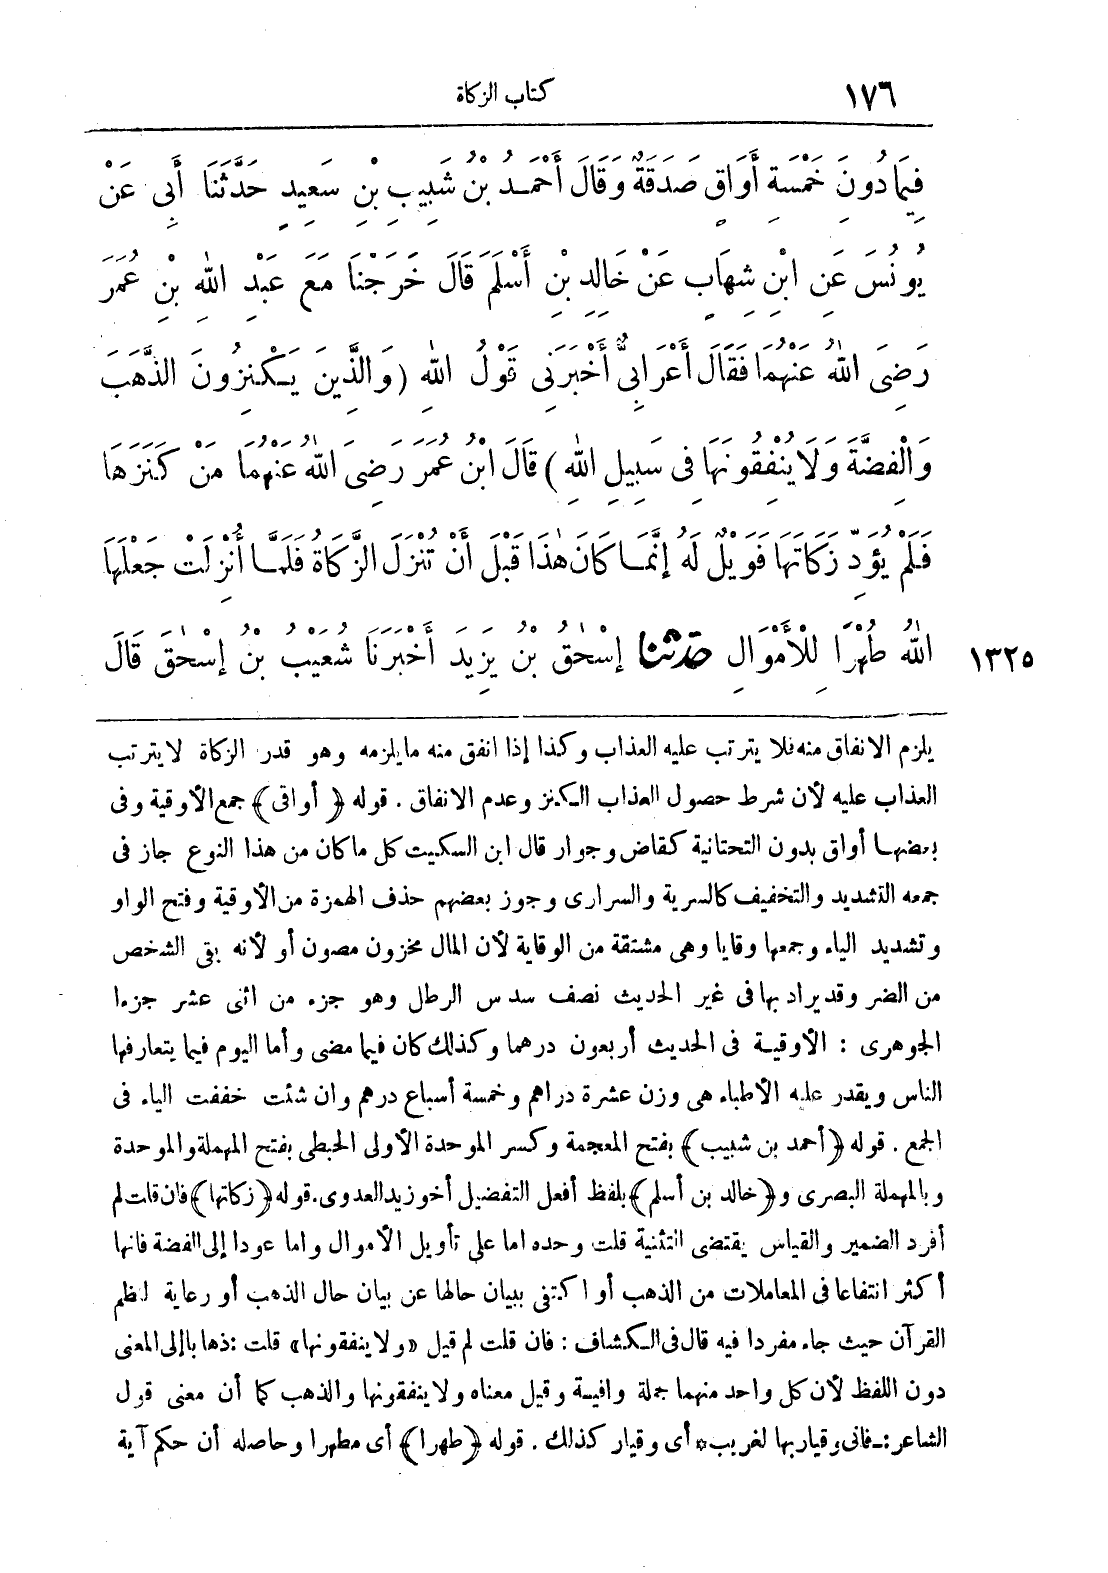 ١٧٦ كتاب الزكاة
فِيمَا دُونَ خَمْسَةِ أَوَاقٍ صَدَقَةٌ وَقَالَ أَحْمَدُ بْنُ شَبِيبِ بْنِ سَعِيدٍ حَدَّثَنَا أَبِى عَنْ
يُونُسَ عَنِ ابْنِ شِهَابٍ عَنْ خَالِدِ بْنِ أَسْلَمَ قَالَ خَرَجْنَا مَعَ عَبْدِ اللهِ بْنِ عُمَرَ
رَضِىَ اللهُ عَنْهُمَا فَقَالَ أَعْرَابِىٌّ أَخْبِرْنِى قَوْلُ اللهِ (وَالَّذِينَ يَكْنِزُونَ الذَّهَبَ
وَالْفِضَّةَ وَلَا يُنْفِقُونَهَا فِى سَبِيلِ اللهِ) قَالَ ابْنُ عُمَرَ رَضِىَ اللهُ عَنْهُمَا مَنْ كَنَزَهَا
فَلَمْ يُؤَدِّ زَكَاتَهَا فَوَيْلٌ لَهُ إِنَّمَا كَانَ هٰذَا قَبْلَ أَنْ تُنْزَلَ الزَّكَاةُ فَلَمَّا أُنْزِلَتْ جَعَلَهَا
اللهُ طُهْرًا لِلْأَمْوَالِ حدثنا إِسْحٰقُ بْنُ يَزِيدَ أَخْبَرَنَا شُعَيْبُ بْنُ إِسْحٰقَ قَالَ ١٣٢٥
يلزم الانفاق منه فلا يترتب عليه العذاب وكذا إذا انفق منه مايلزمه وهو قدر الزكاة لا يترتب
العذاب عليه لأن شرط حصول العذاب الكنز وعدم الانفاق . قوله ﴿أواقى﴾ جمع الأوقية وفى
بعضها أواق بدون التحتانية كقاض وجوار قال ابن السكيت كل ما كان من هذا النوع جاز فى
جمعه التشديد والتخفيف كالسرية والسرارى وجوز بعضهم حذف الهمزة من الأوقية وفتح الواو
وتشديد الياء وجمعها وقايا وهى مشتقة من الوقاية لأن المال مخزون مصون أو لأنه يقى الشخص
من الضر وقد يراد بها فى غير الحديث نصف سدس الرطل وهو جزء من اثنى عشر جزءا
الجوهرى : الأوقية فى الحديث أربعون درهما وكذلك كان فيما مضى وأما اليوم فيما يتعارفها
الناس ويقدر عليه الأطباء هى وزن عشرة دراهم وخمسة أسباع درهم وان شئت خففت الياء فى
الجمع . قوله ﴿أحمد بن شبيب﴾ بفتح المعجمة وكسر الموحدة الأولى الحبطى بفتح المهملة والموحدة
وبالمهملة البصرى و﴿خالد بن أسلم﴾ بلفظ أفعل التفضيل أخو زيد العدوى. قوله ﴿زكاتها﴾ فان قلت لم
أفرد الضمير والقياس يقتضى التثنية قلت وحده اما على تأويل الأموال واما عودا إلى الفضة فانها
أكثر انتفاعا فى المعاملات من الذهب أو اكتفى ببيان حالها عن بيان حال الذهب أو رعاية لنظم
القرآن حيث جاء مفردا فيه قال فى الكشاف : فان قلت لم قيل «ولا ينفقونها» قلت : ذهابا إلى المعنى
دون اللفظ لأن كل واحد منهما جملة وافية وقيل معناه ولا ينفقونها والذهب كما أن معنى قول
الشاعر :- فانى وقيار بها لغريب * أى وقيار كذلك . قوله ﴿طهرا﴾ أى مطهرا وحاصله أن حكم آية